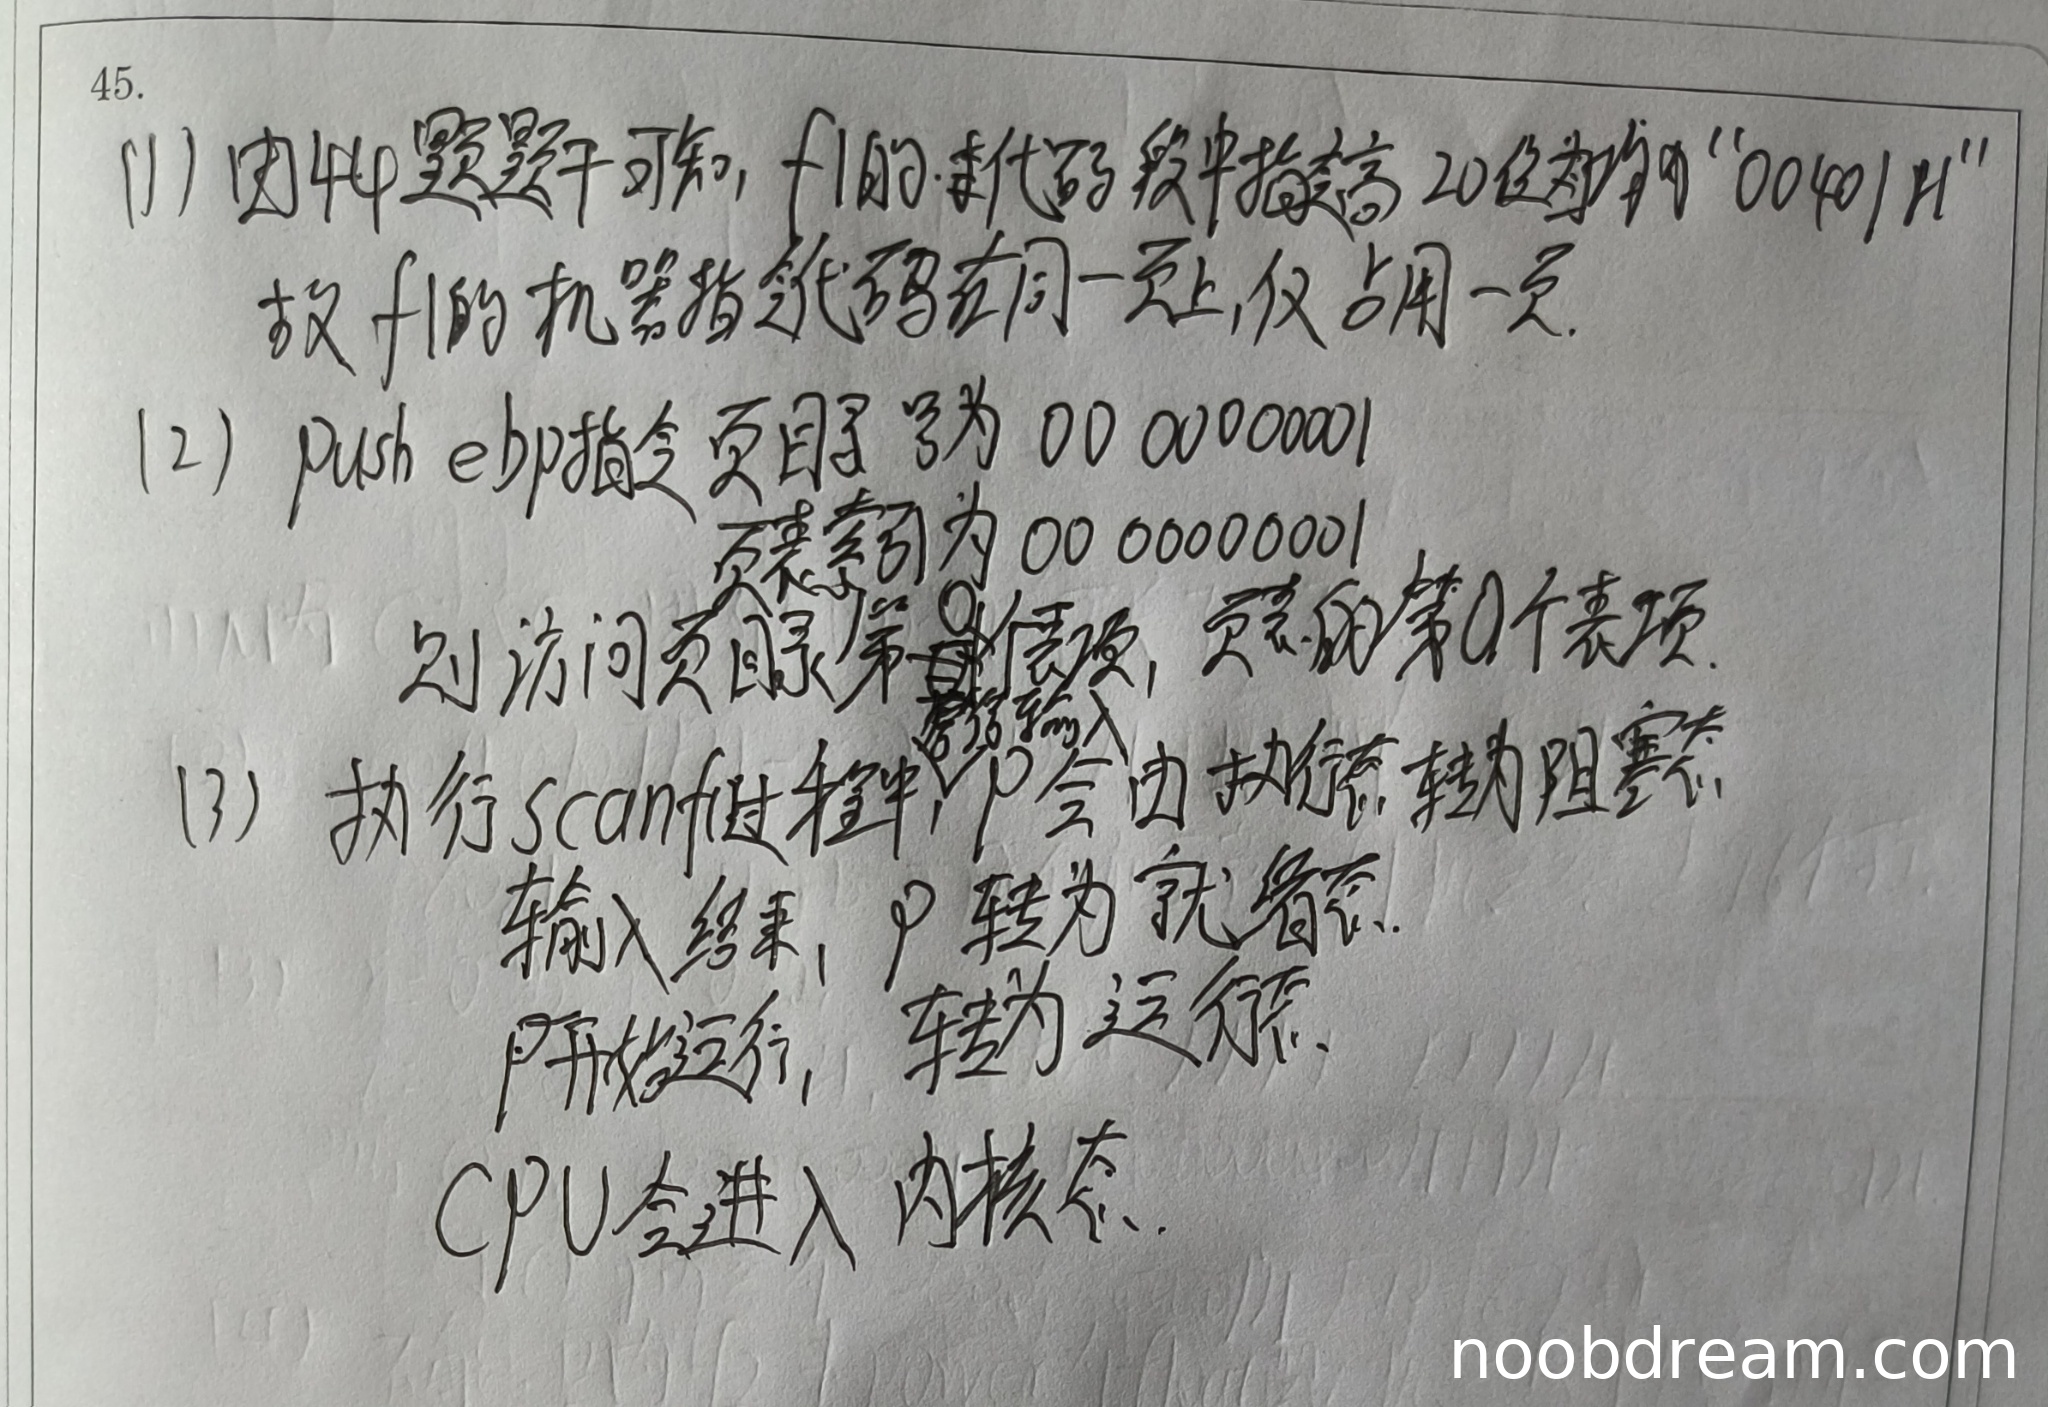 45.
(1) 由44题题干可知, f1的代码段中指令高20位均为"00401H"
故f1的机器指令代码在同一页上,仅占用一页.
(2) push ebp指令页目录号为 00 00000001
页表索引为 00 00000001
则访问页目录第0个表项, 页表的第0个表项.
等待输入
(3) 执行scanf过程中, P会由执行态转为阻塞态
输入结束, P转为就绪态.
P开始运行, 转为运行态.
CPU会进入内核态.
noobdream.com